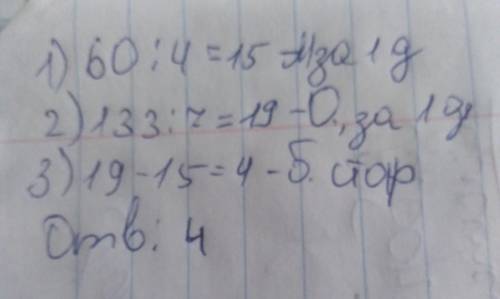 1) 60:4=15 - за 1 д
2) 133:7=19 - О., за 1 д
3) 19-15=4 - Б. стор
Отв: 4